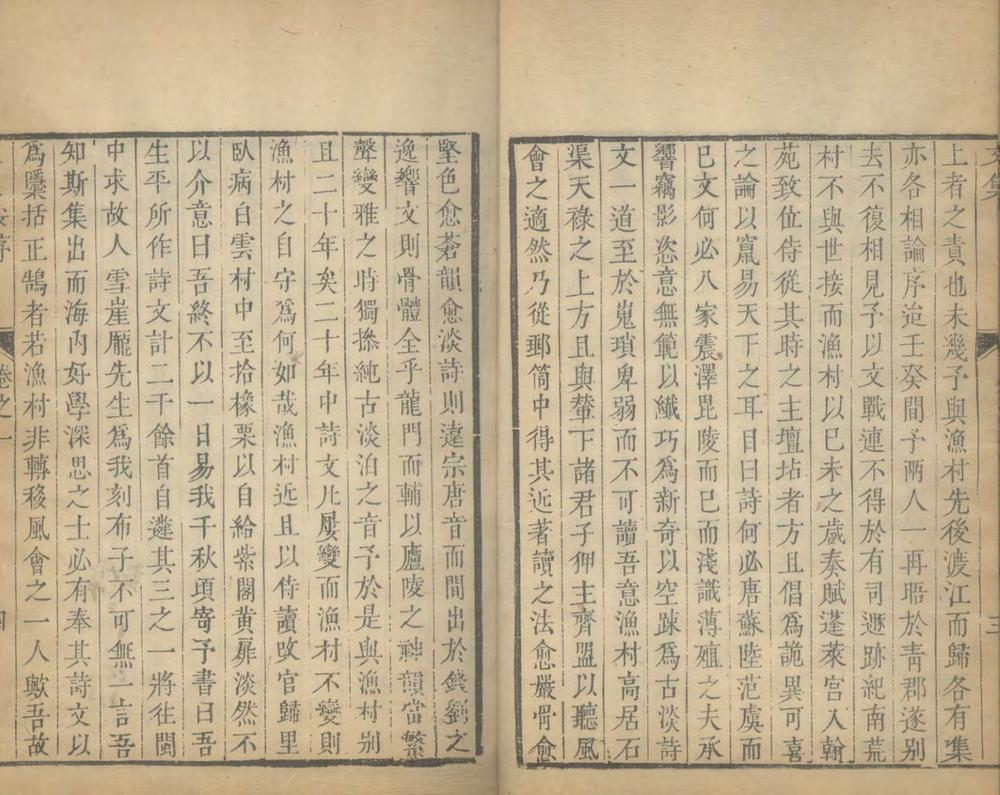 文集
三
上者之責也未幾予與漁村先後渡江而歸各有集
亦各相論序迨壬癸間予兩人一再晤於靑郡遂别
去不復相見予以文戰連不得於有司遯跡紀南荒
村不與世接而漁村以已未之歲奏賦蓬萊宮入翰
苑致位侍從其時之主壇坫者方且倡爲詭異可喜
之論以竄易天下之耳目曰詩何必唐蘇陸范虞而
已文何必八家震澤毘陵而已而淺識薄殖之夫承
響竊影恣意無範以纖巧爲新奇以空踈爲古淡詩
文一道至於嵬瑣卑弱而不可讀吾意漁村高居石
渠天祿之上方且與輦下諸君子狎主齊盟以聽風
會之適然乃從郵筒中得其近著讀之法愈嚴骨愈
堅色愈蒼韻愈淡詩則遠宗唐音而間出於錢劉之
逸響文則骨體全乎龍門而輔以廬陵之神韻當繁
聲變雅之時獨操純古淡泊之音予於是與漁村别
且二十年矣二十年中詩文凡屢變而漁村不變則
漁村之自守爲何如哉漁村近且以侍讀改官歸里
臥病白雲村中至拾橡栗以自給紫閣黃扉淡然不
以介意曰吾終不以一日易我千秋頃寄予書曰吾
生平所作詩文計二千餘首自遴其三之一將往閩
中求故人雪崖龐先生爲我刻布子不可無一言吾
知斯集出而海內好學深思之士必有奉其詩文以
爲檃括正鵠者若漁村非轉移風會之一人歟吾故
序
卷之一
四